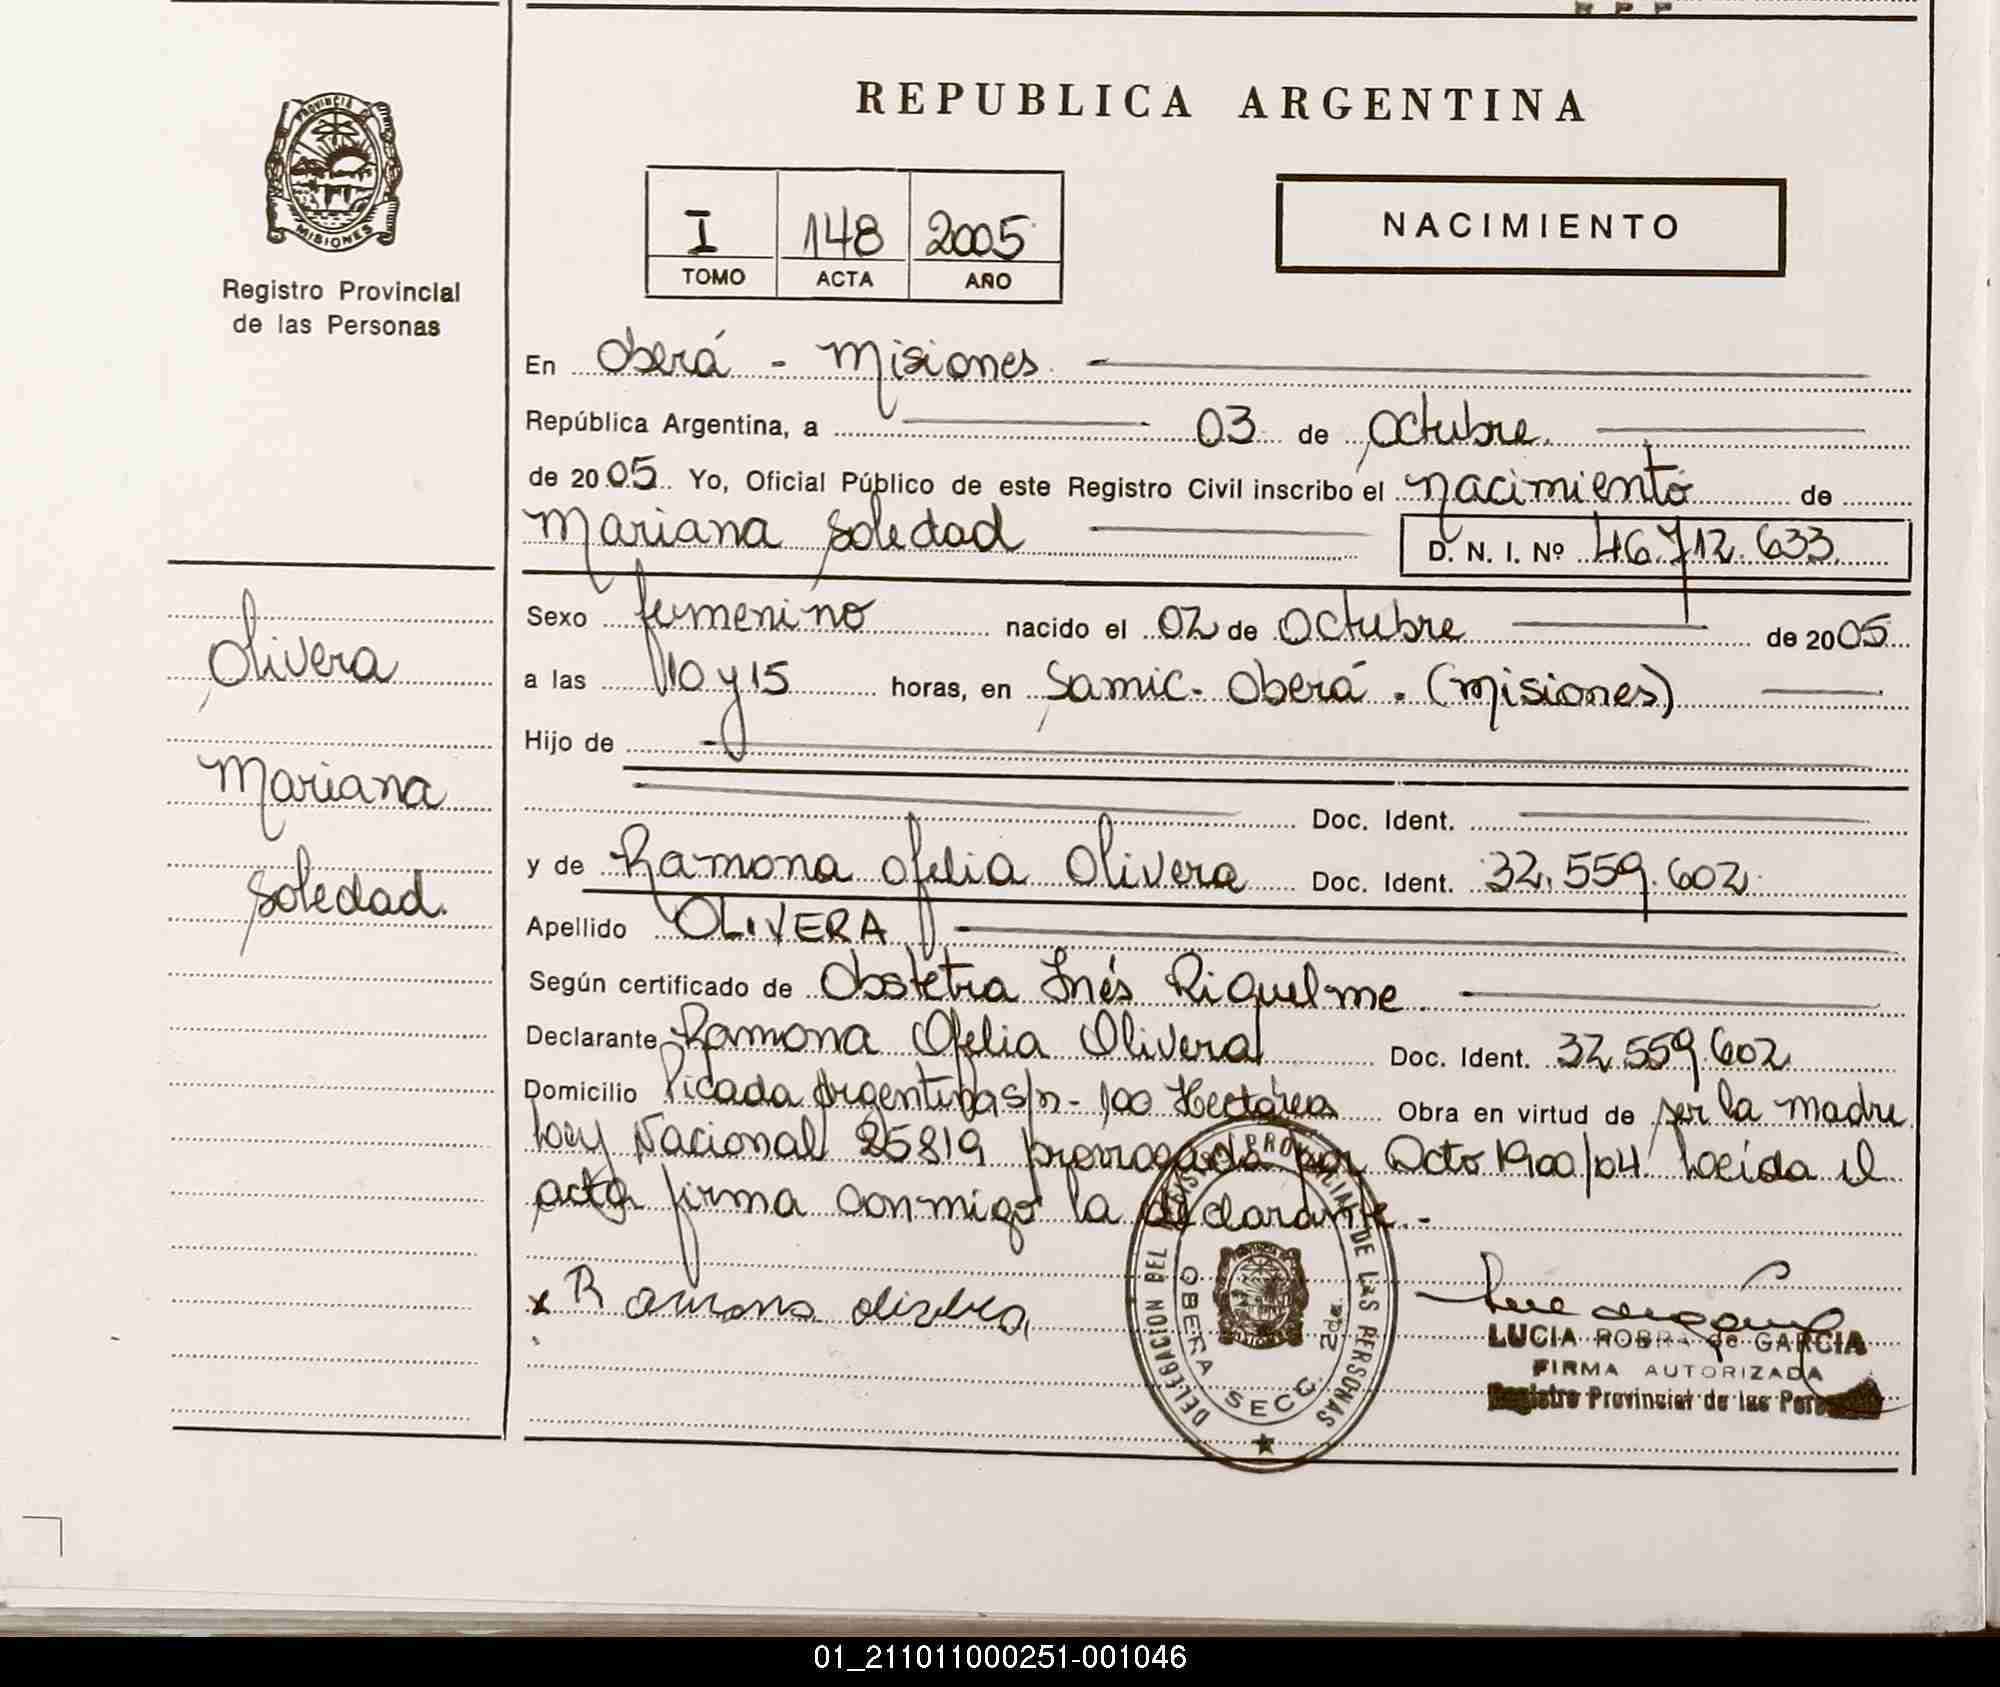 REPUBLICA ARGENTINA
PROVINCIA DE
MISIONES
Registro Provincial
de las Personas
I 148 2005
TOMO ACTA AÑO
NACIMIENTO
En Oberá - Misiones
República Argentina, a 03 de octubre
de 2005 Yo, Oficial Público de este Registro Civil inscribo el nacimiento de
Mariana Soledad D. N. I. Nº 46.712.633
Sexo femenino nacido el 02 de octubre de 2005
a las 10 y 15 horas, en Samic. Oberá. (Misiones)
Hijo de
Doc. Ident.
y de Ramona Ofelia Olivera Doc. Ident. 32.559.602
Apellido OLIVERA
Según certificado de Obstetra Inés Riquelme
Declarante Ramona Ofelia Olivera Doc. Ident. 32.559.602
Domicilio Picada Argentina s/n - 100 Hectárea Obra en virtud de ser la madre
Ley Nacional 25819 prorrogada por Dcto 1900/04 Leída el
acta firma conmigo la declarante.-
Olivera
Mariana
Soledad.
x Ramona
DELEGACION DEL REGISTRO PROVINCIAL DE LAS PERSONAS
OBERA SECC. 2da.
LUCIA ROBRA de GARCIA
FIRMA AUTORIZADA
Registro Provincial de las
01_211011000251-001046